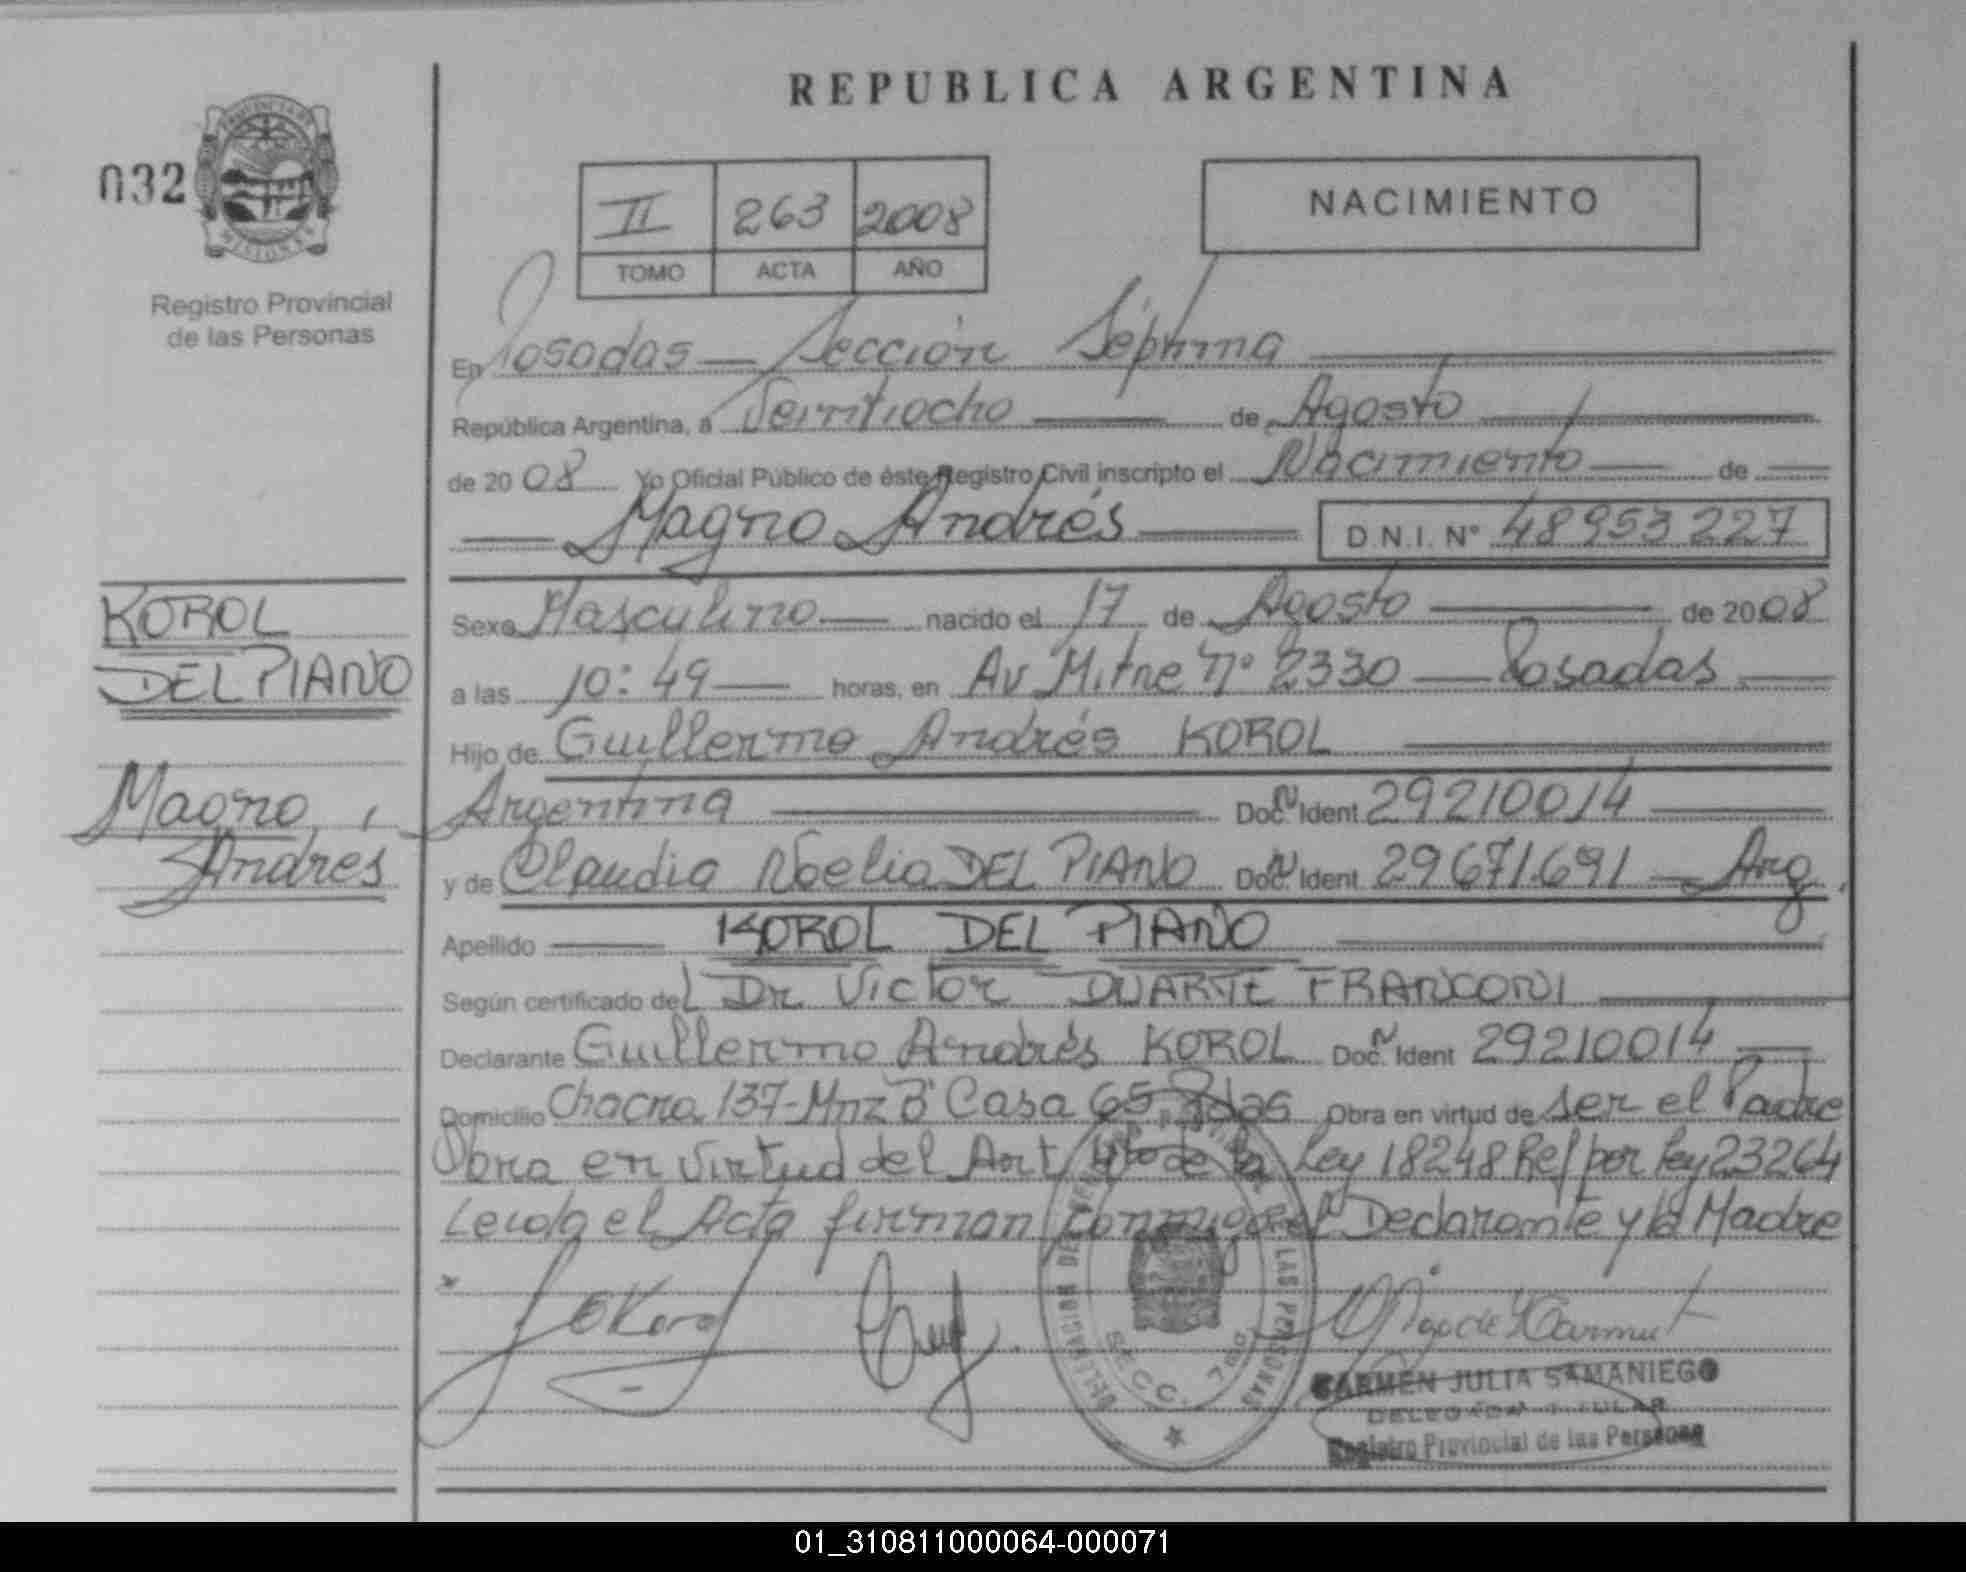 REPUBLICA ARGENTINA
032
PROVINCIA DE
MISIONES
Registro Provincial
de las Personas
II 263 2008
TOMO ACTA AÑO
NACIMIENTO
En Posadas — Sección Séptima
República Argentina, a Veintiocho de Agosto
de 2008 Yo Oficial Público de éste Registro Civil inscripto el Nacimiento — de —
— Magno Andrés — D.N.I. Nº 48953227
KOROL
DEL PIANO
Magno,
Andres
Sexo Masculino — nacido el 17 de Agosto — de 2008
a las 10:49 — horas, en Av Mitre nº 2330 — Posadas —
Hijo de Guillermo Andrés KOROL
Argentina — Doc. N Ident 29210014
y de Claudia Noelia DEL PIANO Doc. N Ident 29671691 — Arg.
Apellido — KOROL DEL PIANO
Según certificado del Dr Victor DUARTE FRANCONI
Declarante Guillermo Andrés KOROL Doc. N Ident 29210014
Domicilio Chacra 137-Mnz B Casa 65 Pdas Obra en virtud de ser el Padre
Obra en virtud del Art 4to de la Ley 18248 Ref por Ley 23264
Leida el Acta firman conmigo el Declarante y la Madre
Korol
DELEGACION DE
DE LAS PERSONAS
SECC. 7ma
CARMEN JULIA SAMANIEGO
DELEGADA TITULAR
Registro Provincial de las Personas
01_310811000064-000071